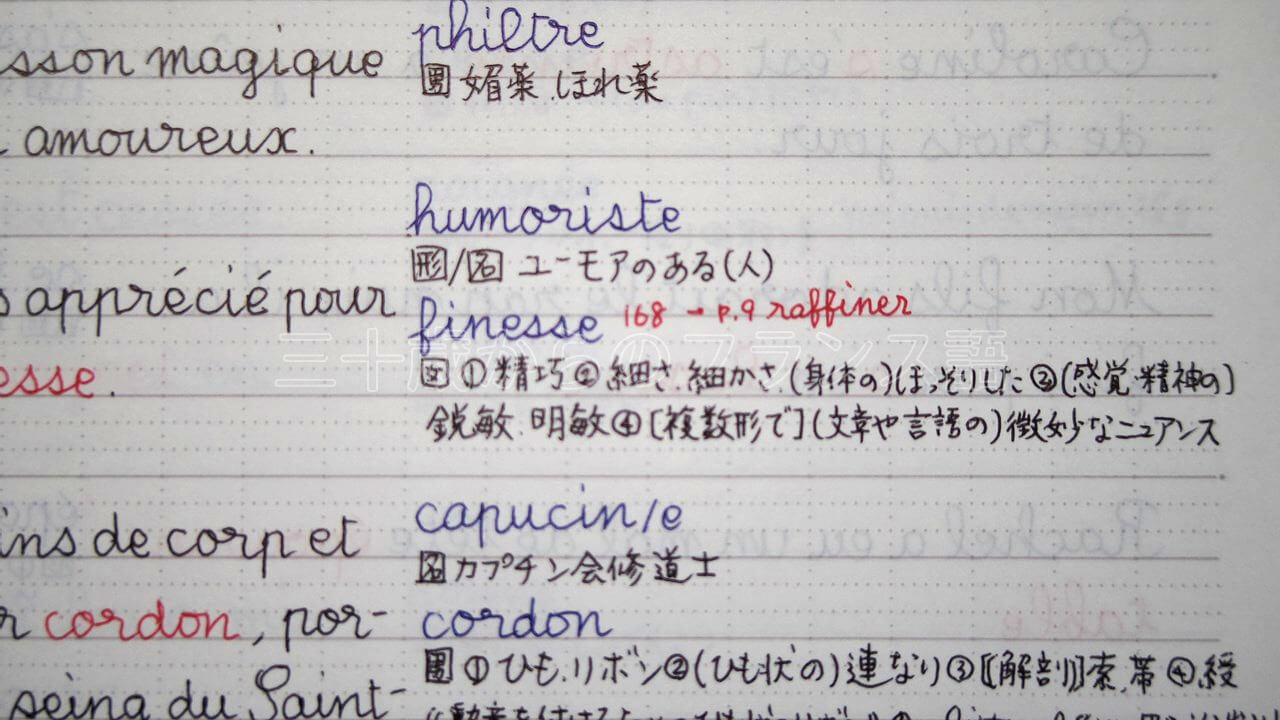 sson magique
amoureux.
apprécié pour
esse.
ins de corp et
cordon, por-
seing du Saint-
philtre
男 媚薬.ほれ薬
humoriste
形/名 ユーモアのある(人)
finesse 168 → p.9 raffiner
女 ①精巧 ②細さ.細かさ.(身体の)ほっそりした ③(感覚.精神の)
鋭敏.明敏 ④[複数形で](文章や言語の)微妙なニュアンス
capucin/e
名 カプチン会修道士
cordon
男 ①ひも.リボン ②(ひも状の)連なり ③〚解剖〛索.帯 ④綬
三十歳からのフランス語